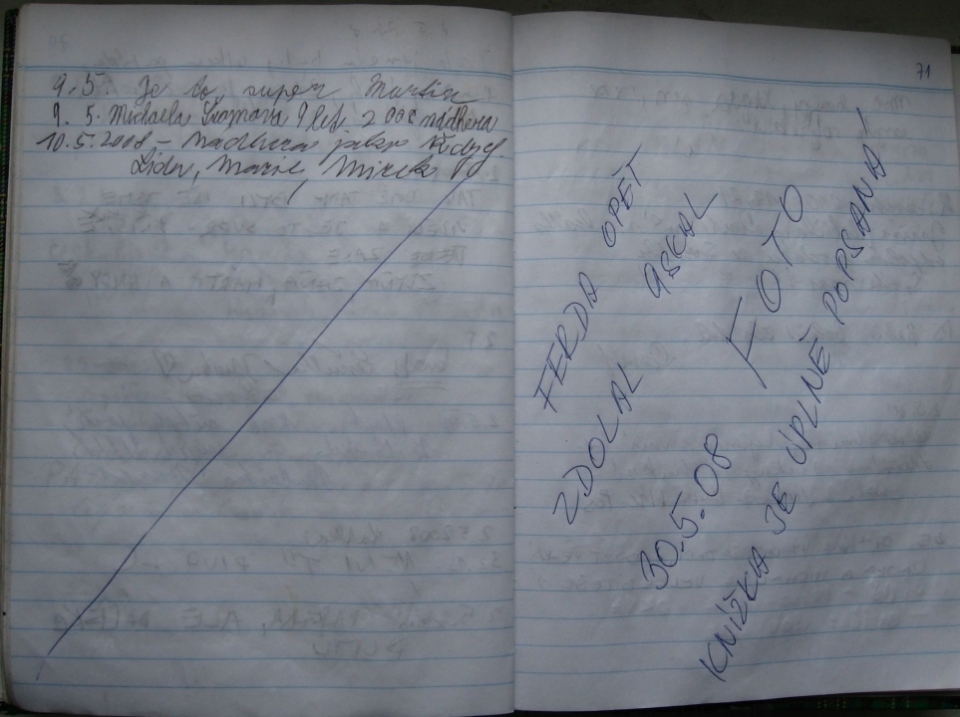 9.5. Je to super Martin
9.5. Michaela 9 let. 2008 nádhera
10.5.2008 – Nádhera jako vždy
Lída, Marie, Mirek
71
FERDA OPĚT
ZDOLAL
30.5.08 FOTO
KNÍŽKA JE ÚPLNĚ POPSANÁ!